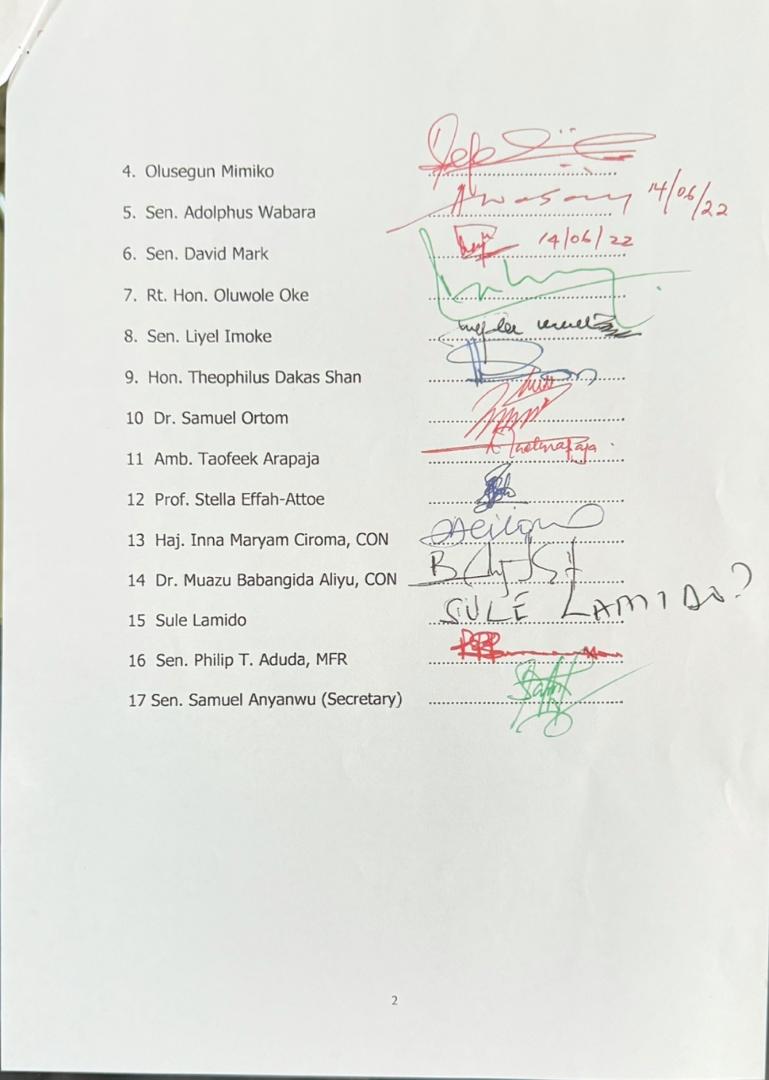 4. Olusegun Mimiko
5. Sen. Adolphus Wabara 14/06/22
6. Sen. David Mark 14/06/22
7. Rt. Hon. Oluwole Oke
8. Sen. Liyel Imoke
9. Hon. Theophilus Dakas Shan
10 Dr. Samuel Ortom
11 Amb. Taofeek Arapaja
12 Prof. Stella Effah-Attoe
13 Haj. Inna Maryam Ciroma, CON
14 Dr. Muazu Babangida Aliyu, CON
15 Sule Lamido SULE LAMIDO?
16 Sen. Philip T. Aduda, MFR
17 Sen. Samuel Anyanwu (Secretary)
2